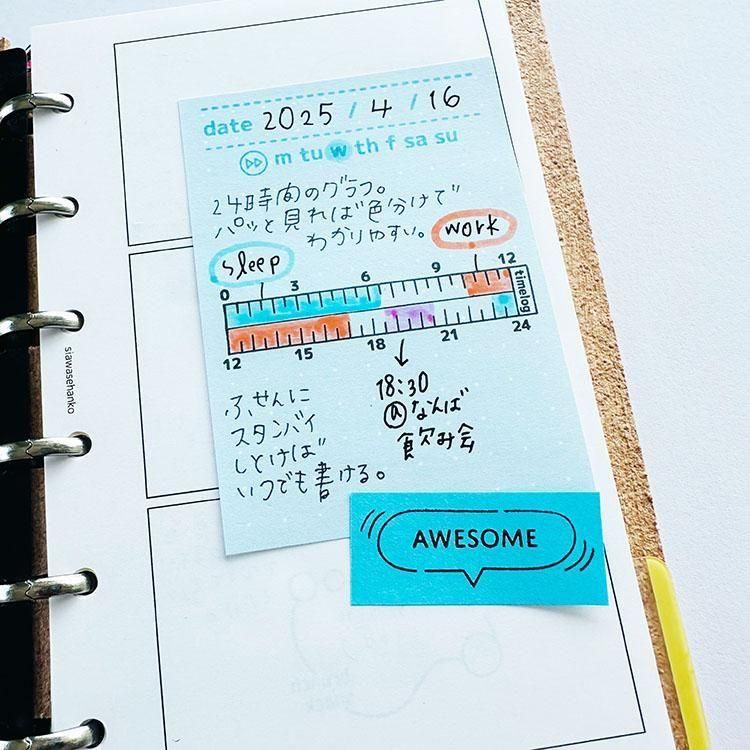 date 2025 / 4 / 16
m tu w th f sa su
24時間のグラフ。
パッと見れば色分けで
わかりやすい。
sleep
work
0 3 6 9 12
timelog
12 15 18 21 24
ふせんに
スタンバイ
しとけば
いつでも書ける。
18:30
@なんば
飲み会
AWESOME
siawasehanko